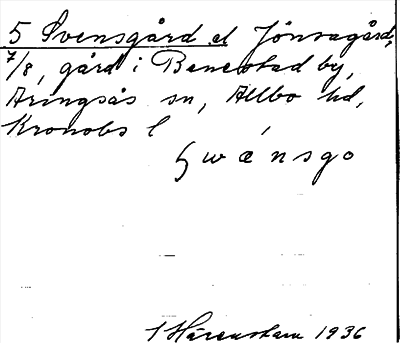 5 Svensgård el Jönsagård,
7/8, gård i Benestad by,
Aringsås sn, Allbo hd,
Kronobs l
swænsgo
Härenstam 1936